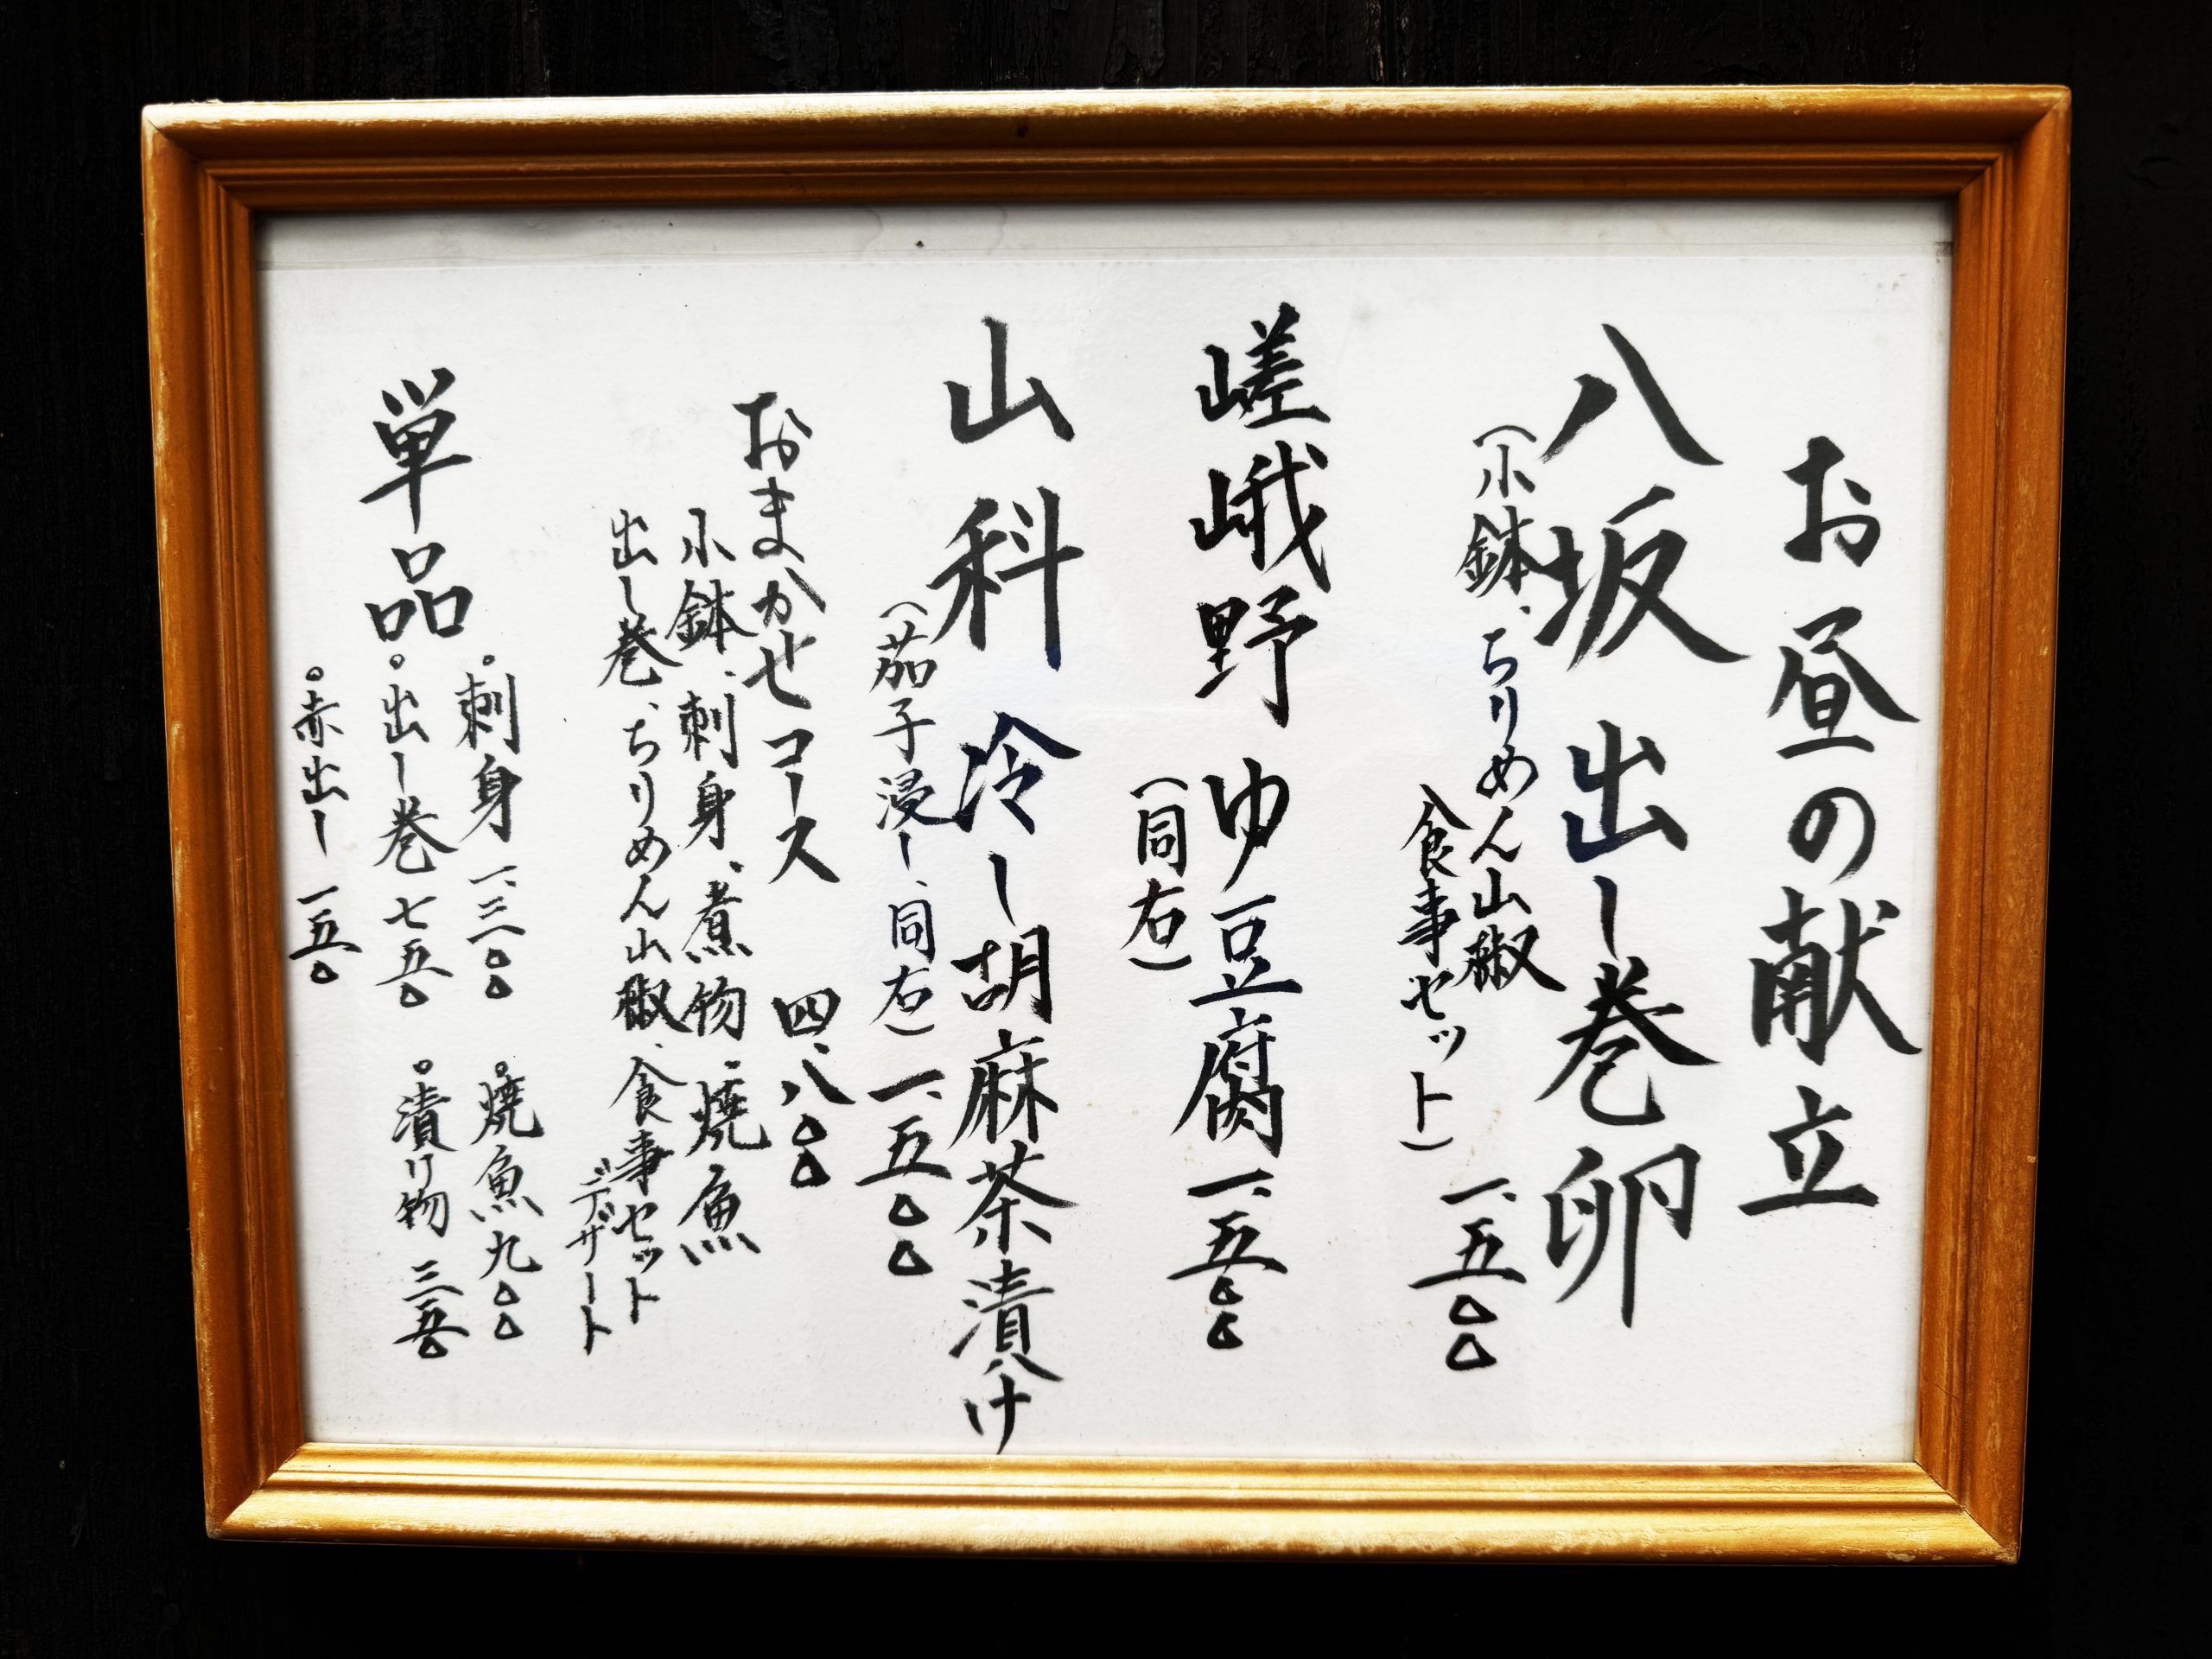 お昼の献立
八坂 出し巻卵
（小鉢、ちりめん山椒
食事セット） 一、五〇〇
嵯峨野 ゆ豆腐 一、五〇〇
（同右）
山科 冷し胡麻茶漬け
（茄子浸し、同右） 一、五〇〇
おまかせコース 四、八〇〇
小鉢、刺身、煮物、焼魚
出し巻、ちりめん山椒、食事セット
デザート
単品
。刺身 一、三〇〇 。焼魚 九〇〇
。出し巻 七五〇 。漬け物 三五〇
。赤出し 一五〇